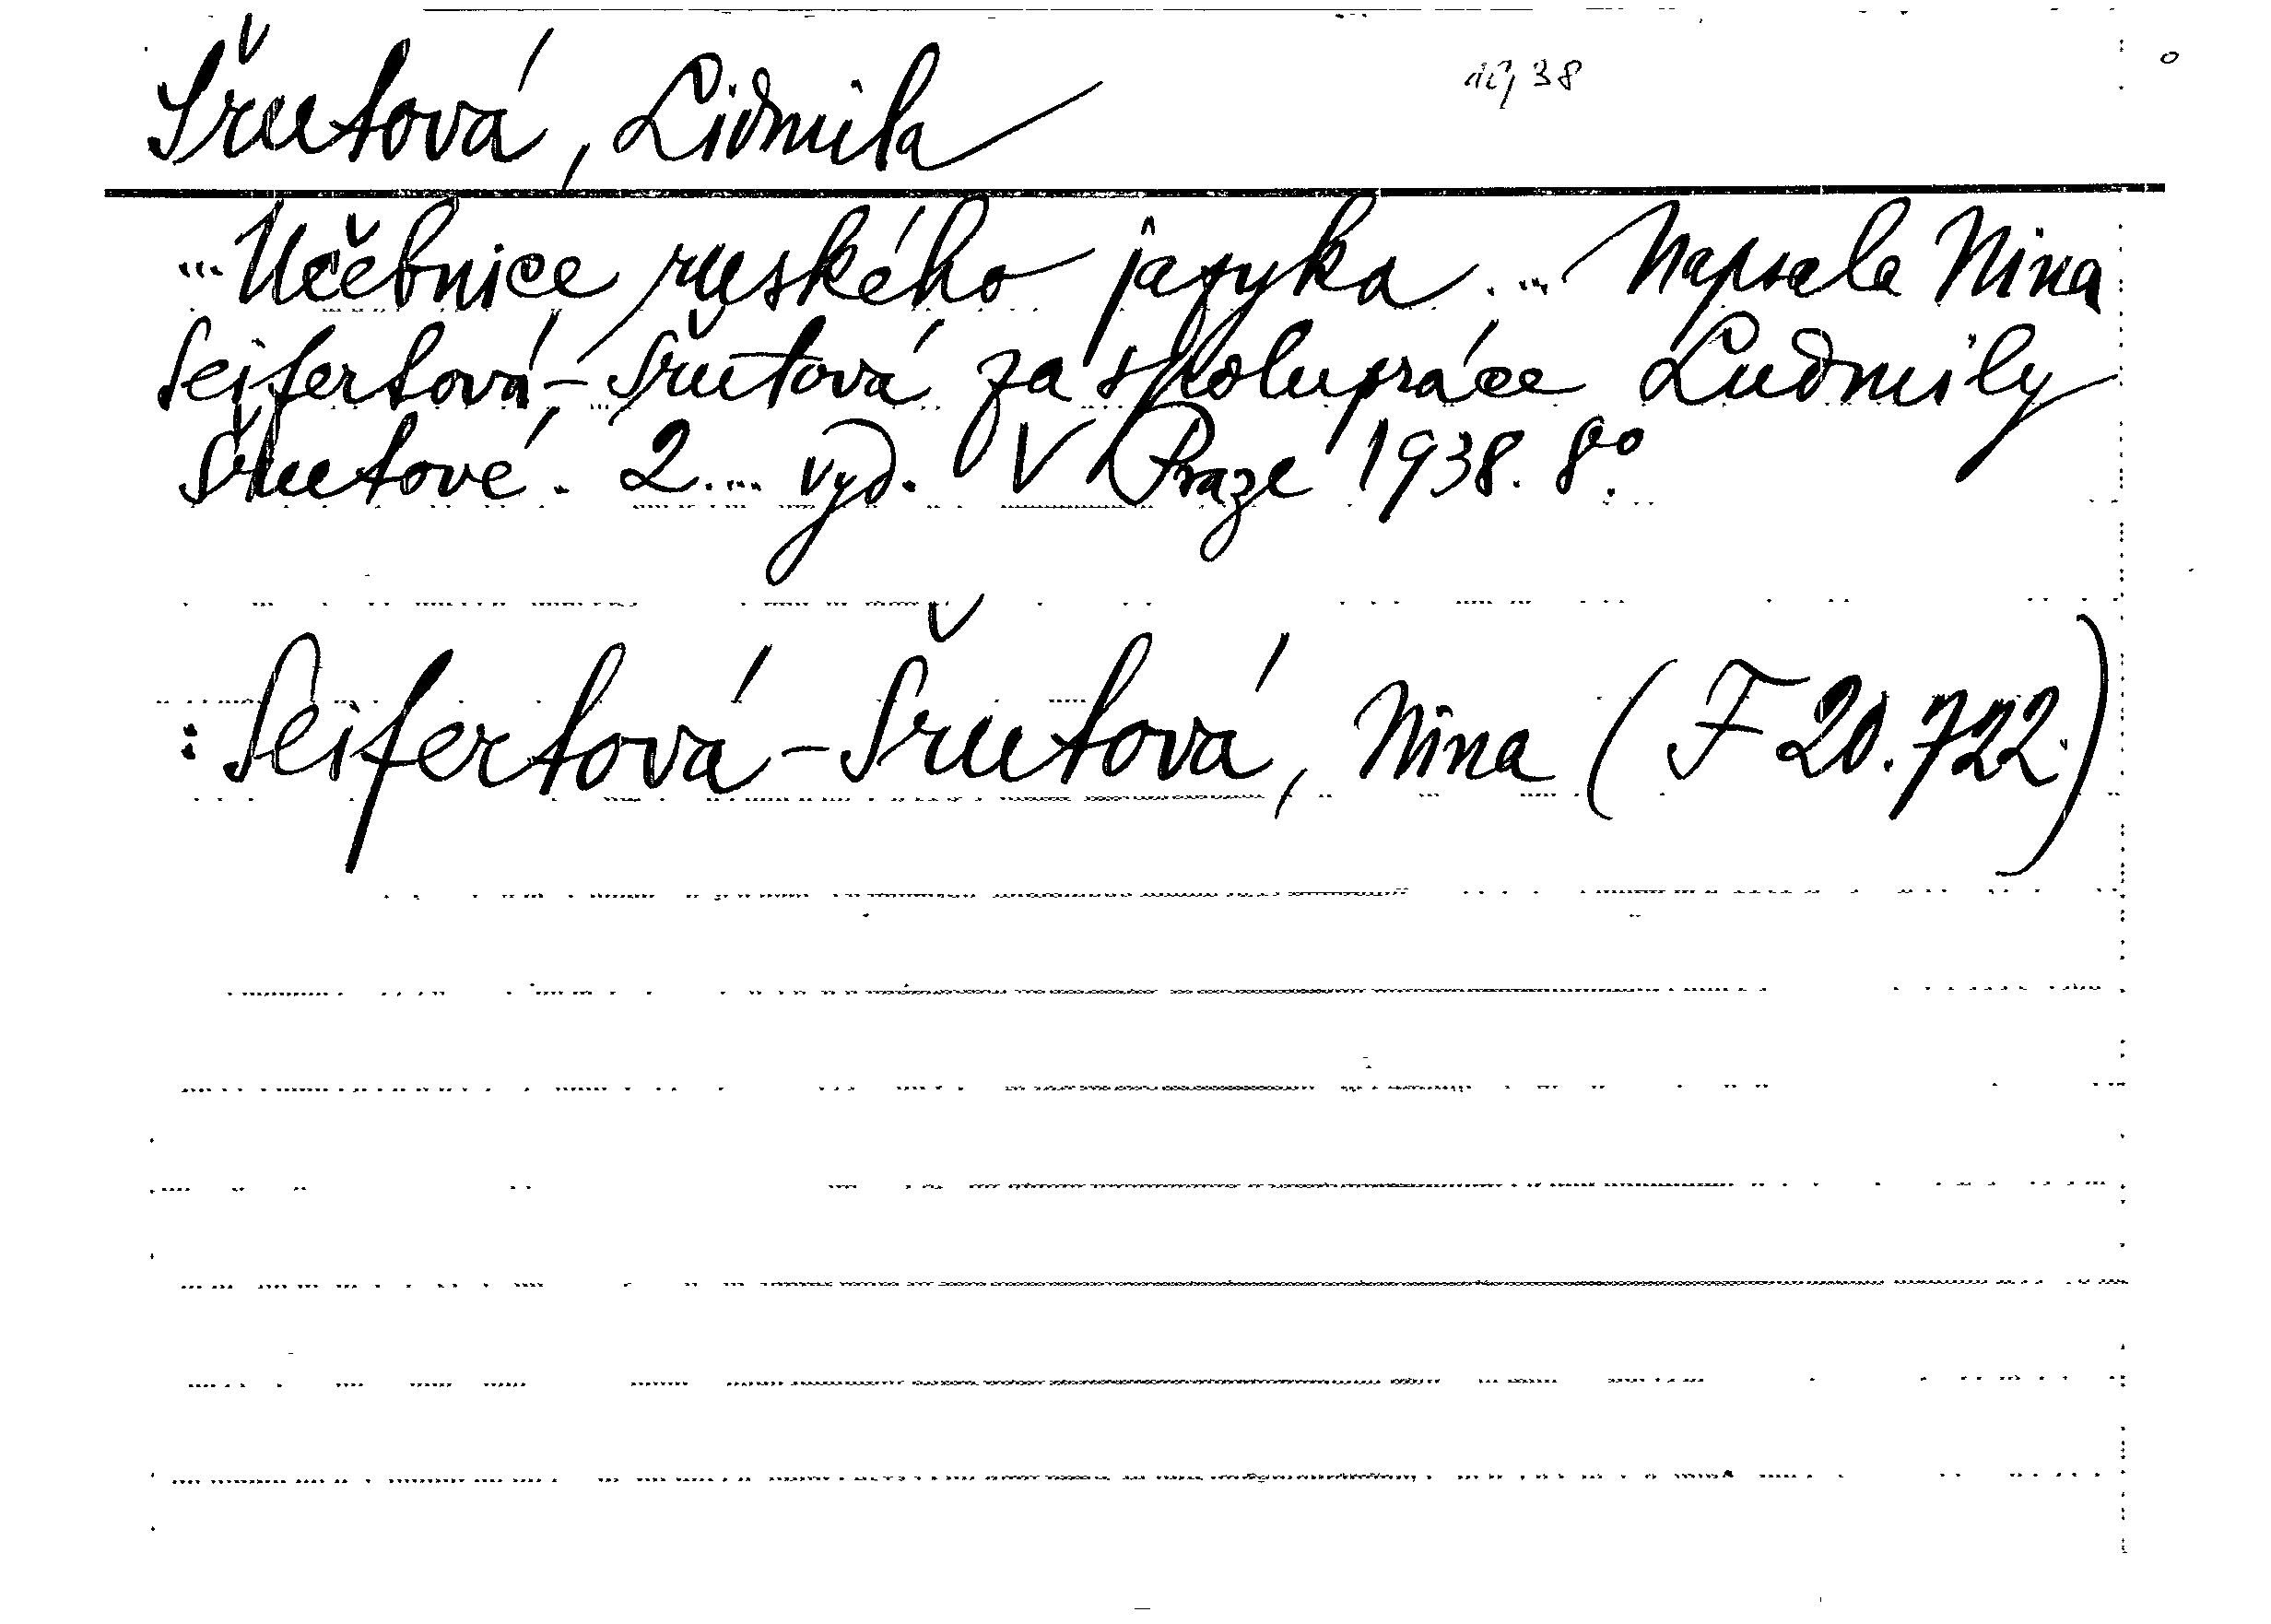 Šrutová, Lidmila
1938
... Učebnice ruského jazyka ... Napsala Nina
Seifertová-Šrutová za spolupráce Ludmily
Šrutové. 2. ... vyd. V Praze 1938. 8°.
: Seifertová-Šrutová, Nina (F 20.722.)